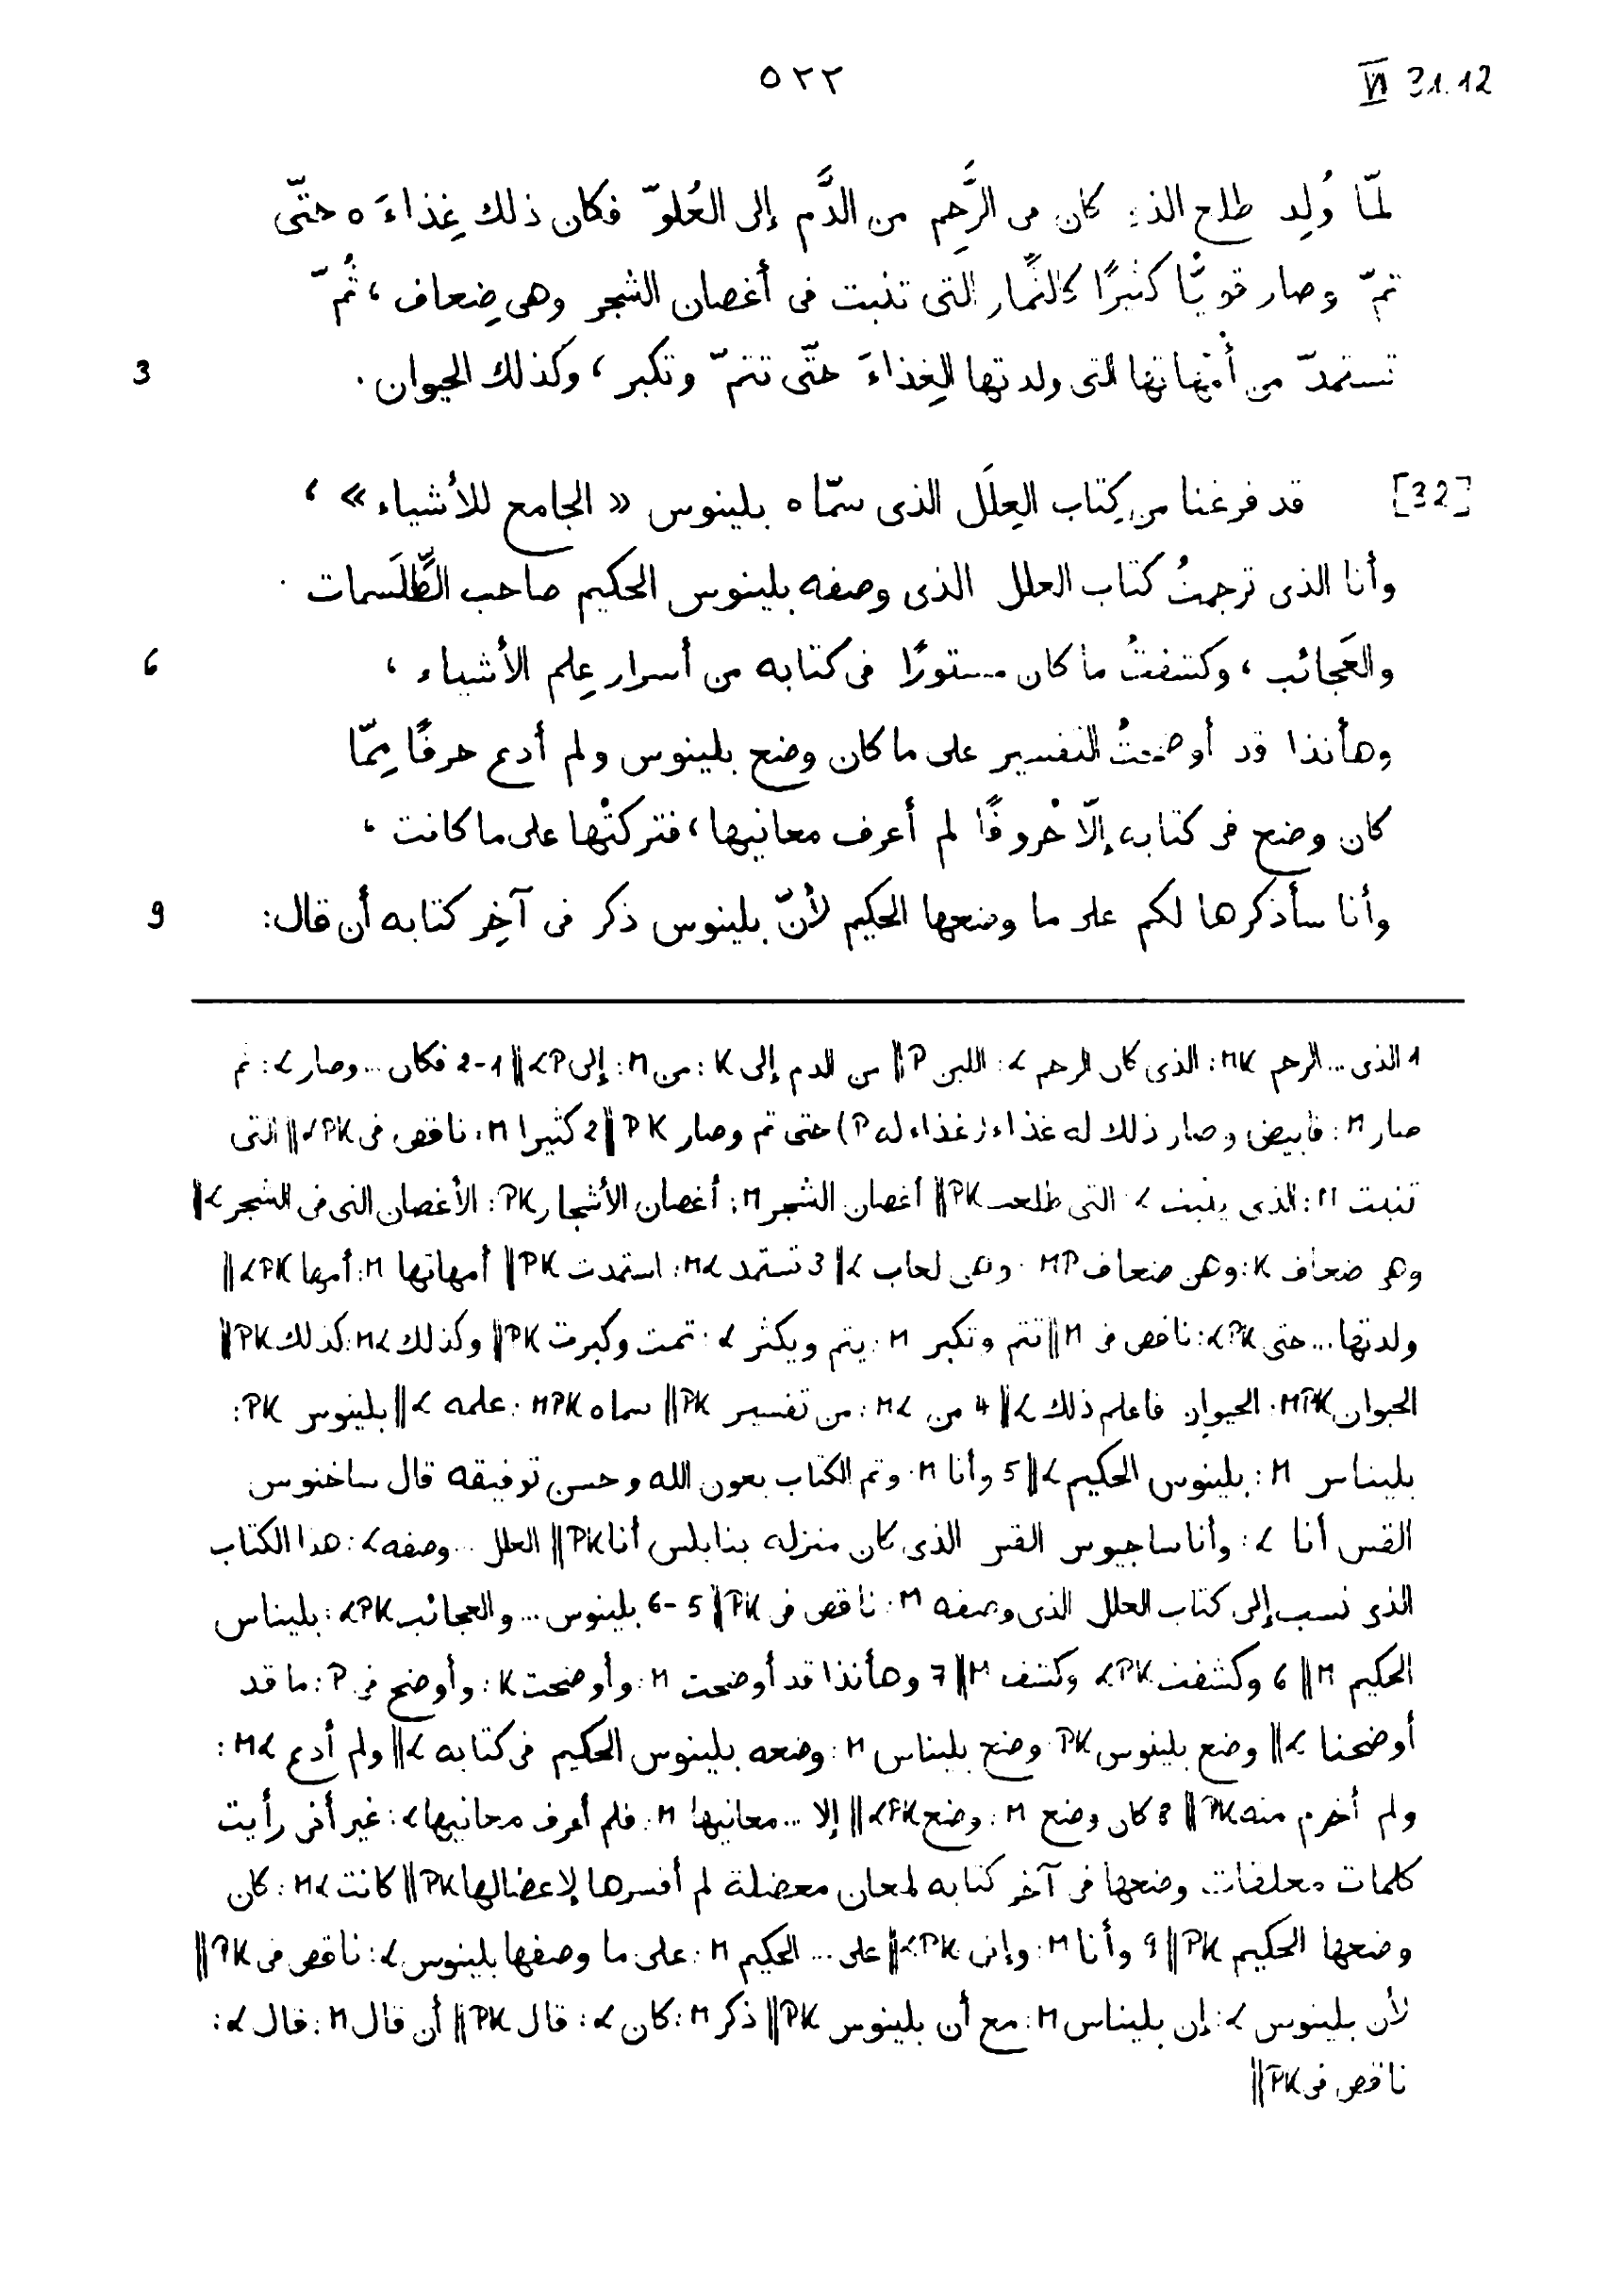 ٥٢٢ VI 31.12
لمّا وُلِد طلع الذى كان فى الرَّحِم من الدَّم إلى العُلوّ فكان ذلك غِذاءَه حتّى
تمّ وصار قويًّا كثيرًا كالثِّمار التى تنبت فى أغصان الشجر وهى ضِعاف، ثُمّ
3 تستمدّ من أُمّهاتها التى ولدتها الغِذاءَ حتّى تتمّ وتكبر، وكذلك الحيوان.
[32] قد فرغنا من كِتاب العِلَل الذى سمّاه بلينوس «الجامع للأشياء»،
وأنا الذى ترجمتُ كتاب العلل الذى وصفه بلينوس الحكيم صاحب الطِّلَّسمات
6 والعَجائب، وكشفتُ ما كان مستورًا فى كتابه من أسرار عِلم الأشياء،
وهأنذا قد أوضحتُ التفسير على ما كان وضع بلينوس ولم أدع حرفًا مِمّا
كان وضع فى كتابه إلّا حُروفًا لم أعرف معانيها، فتركتُها على ما كانت،
9 وأنا سأذكرها لكم على ما وضعها الحكيم لأنّ بلينوس ذكر فى آخِر كتابه أن قال:
1 الذى... الرحم MK: الذى كان الرحم ⍺: اللبن P‖ من الدم إلى K: من M: إلى P⍺‖ 1-2 فكان... وصار ⍺: ثم
صار M: فابيض وصار ذلك له غذاء (غذاء له P) حتى تم وصار PK‖ 2 كثيرا M: ناقص فى PK⍺‖ التى
تنبت M: الذى ينبت ⍺: التى طلعت PK‖ أغصان الشجر M: أغصان الأشجار PK: الأغصان التى فى الشجر ⍺‖
وهو ضعاف K: وهى ضعاف MP: وهى لعاب ⍺‖ 3 تستمد M⍺: استمدت PK‖ أمهاتها M: أمها PK⍺‖
ولدتها... حتى PK⍺: ناقص فى M‖ تتم وتكبر M: يتم ويكثر ⍺: تمت وكبرت PK‖ وكذلك M⍺: كذلك PK‖
الحيوان MPK: الحيوان فاعلم ذلك ⍺‖ 4 من M⍺: من تفسير PK‖ سماه MPK: علمه ⍺‖ بلينوس PK:
بليناس M: بلينوس الحكيم ⍺‖ 5 وأنا M: وتم الكتاب بعون الله وحسن توفيقه قال ساخنوس
القس أنا ⍺: وأنا ساجيوس القس الذى كان منزله بنابلس أنا PK‖ العلل... وصفه ⍺: هذا الكتاب
الذى نسب إلى كتاب العلل الذى وصفه M: ناقص فى PK‖ 5-6 بلينوس... والعجائب PK⍺: بليناس
الحكيم M‖ 6 وكشفت PK⍺: وكشف M‖ 7 وهأنذا قد أوضحت M: وأوضحت K: وأوضح فى P: ما قد
أوضحنا ⍺‖ وضع بلينوس PK: وضع بليناس M: وضعه بلينوس الحكيم فى كتابه ⍺‖ ولم أدع M⍺:
ولم أخرم منه PK‖ 8 كان وضع M: وضع PK⍺‖ إلا... معانيها M: فلم أعرف معانيها ⍺: غير أنى رأيت
كلمات معلقات وضعها فى آخر كتابه لمعان معضلة لم أفسرها لإعضالها PK‖ كانت M⍺: كان
وضعها الحكيم PK‖ 9 وأنا M: وإنى PK⍺‖ على... الحكيم M: على ما وصفها بلينوس ⍺: ناقص فى PK‖
لأن بلينوس ⍺: إن بليناس M: مع أن بلينوس PK‖ ذكر M: كان ⍺: قال PK‖ أن قال M: قال ⍺:
ناقص فى PK‖